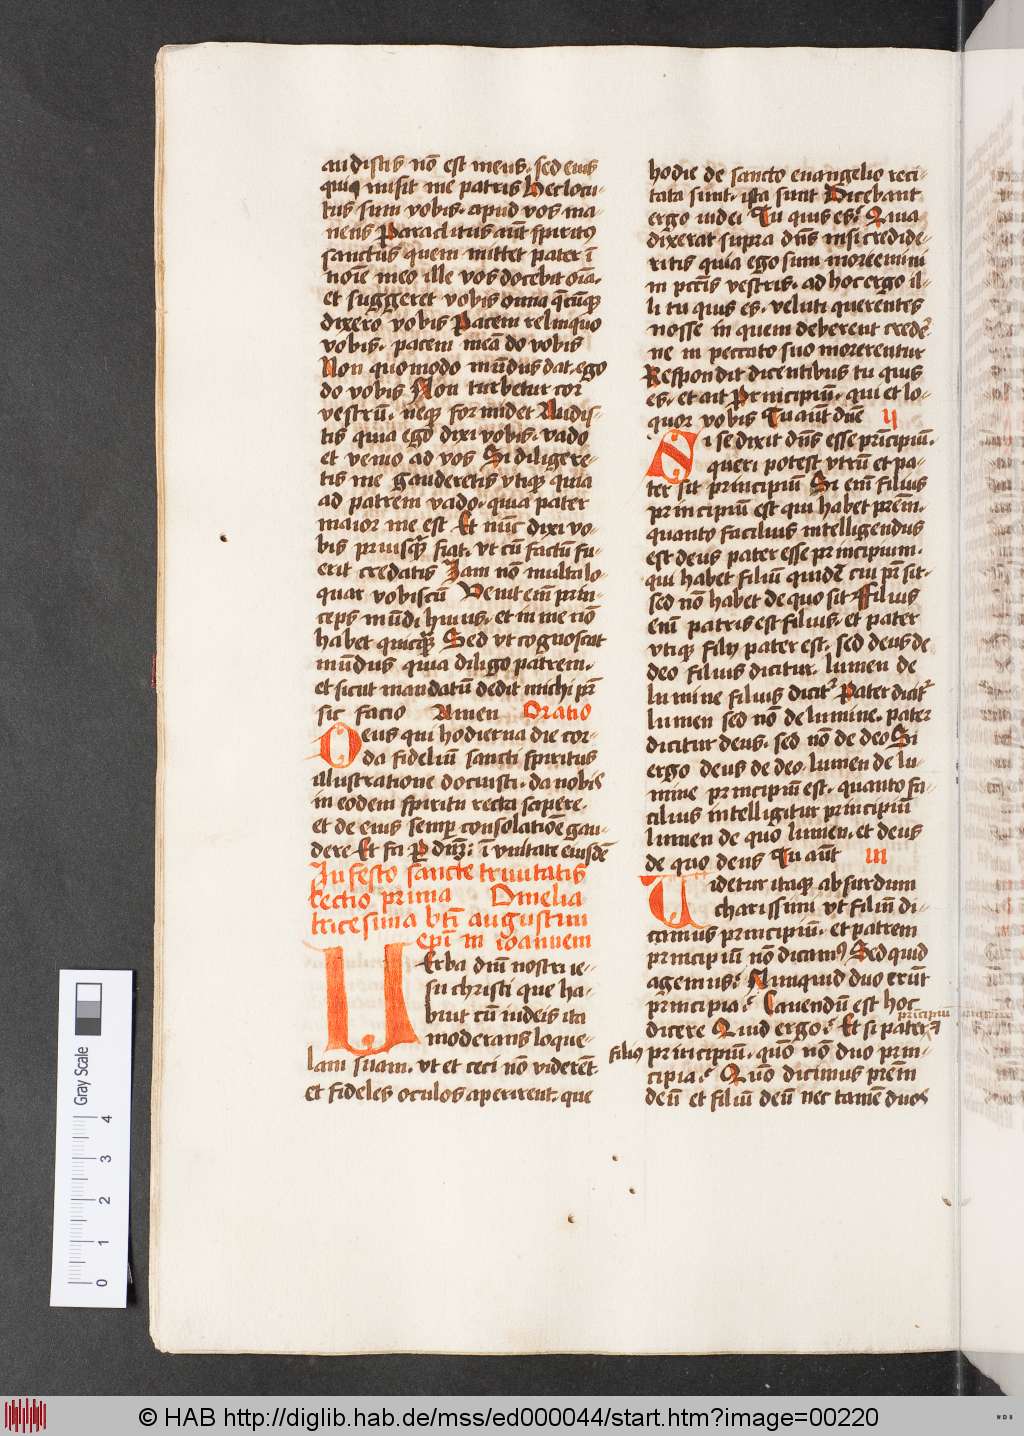 audistis nō est meus. sed eius
qui misit me patris Hec locu-
tus sum vobis. apud vos ma-
nens Paraclitus aūt spiritꝰ
sanctus quem mittet pater ī
noīe meo ille vos docebit oīa.
et suggeret vobis omnia q̄cūqꝫ
dixero vobis Pacem relinquo
vobis. pacem meā do vobis
Non quomodo mūdus dat. ego
do vobis Non turbetur cor
vestrū. neqꝫ formidet Audis-
tis quia ego dixi vobis. vado
et venio ad vos Si diligere-
tis me gauderetis vtiqꝫ quia
ad patrem vado. quia pater
maior me est Et nūc dixi vo-
bis priusq̄ȝ fiat. vt cū factū fu-
erit credatis Jam nō multa lo-
quar vobiscū Venit em̄ prin-
ceps mūdi huius. et in me nō
habet quicq̄ȝ Sed vt cognoscat
mūdus quia diligo patrem.
et sicut mandatū dedit michi pr̄
sic facio Amen Oratio
Deus qui hodierna die cor-
da fideliū sancti spiritus
illustratione docuisti. da nobis
in eodem spiritu recta sapere.
et de eius semp̄ consolatiōe gau-
dere Et fn̄ P dn̄ꝫ: ī vnitate eiusdē
In festo sancte trinitatis
Lectio prima Omelia
tricesima bt̄i augustini
ep̄i in ioannem
Uerba dn̄i nostri ie-
su christi que ha-
buit cū iudeis ita
moderans loque-
lam suam. vt et ceci nō viderēt
et fideles oculos aperirent. que
hodie de sancto euangelio reci-
tata sunt. ista sunt Dicebant
ergo iudei Tu quis es? Quia
dixerat supra dn̄s nisi credide-
ritis quia ego sum moreemini
in pctīs vestris. ad hoc ergo il-
li tu quis es. veluti querentes
nosse in quem deberent crede᷑
ne in peccato suo morerentur
Respondit dicentibus tu quis
es. et ait Principiū. qui et lo-
quor vobis Tu aūt dn̄e ij
Si se dixit dn̄s esse prīcipiū.
queri potest vtrū et pa-
ter sit principiū Si em̄ filius
principiū est qui habet prēm.
quanto facilius intelligendus
est deus pater esse principium.
qui habet filiū quidē cui pr̄ sit.
sed nō habet de quo sit Filius
em̄ patris est filius. et pater
vtiqꝫ filij pater est. sed deus de
deo filius dicitur. lumen de
lumine filius dicit᷑ Pater dicit᷑
lumen sed nō de lumine. pater
dicitur deus. sed nō de deo Si
ergo deus de deo. lumen de lu-
mine principiū est. quanto fa-
cilius intelligitur principiū
lumen de quo lumen. et deus
de quo deus Tu aūt iij
Videtur itaqꝫ absurdum
charissimi vt filiū di-
camus principiū. et patrem
principiū nō dicamꝰ Sed quid
agemus? Numquid duo erūt
principia? Cauendū est hoc
principiū
dicere Quid ergo? Et si pater ⁊
filiꝰ principiū. quō nō duo prin-
cipia? Quō dicimus prēm
deū et filiū deū nec tamē duos
Gray Scale
0 1 2 3 4
© HAB http://diglib.hab.de/mss/ed000044/start.htm?image=00220